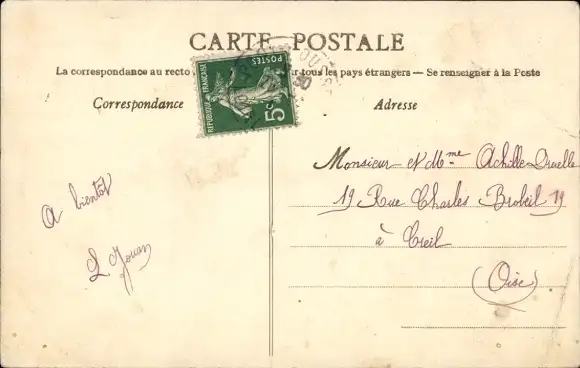 CARTE POSTALE
La correspondance au recto tous les pays étrangers — Se renseigner à la Poste
Correspondance
Adresse
REPUBLIQUE FRANÇAISE
POSTES
5c
A bientôt
L Jouan
Monsieur et Mme Achille
19 Rue Charles 19
à Creil
(Oise)